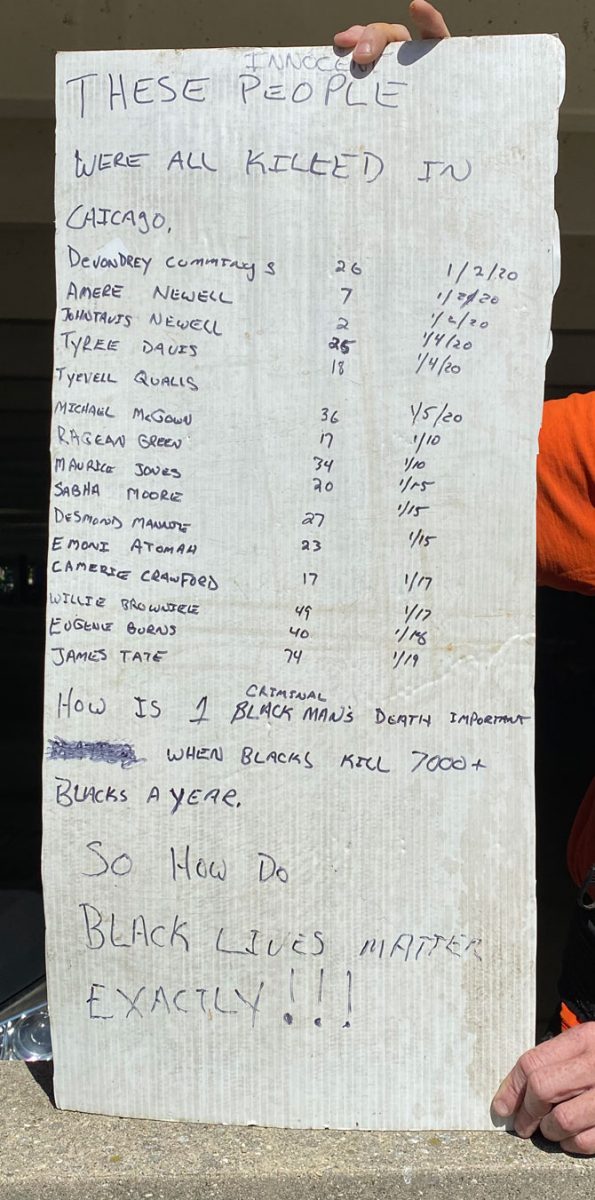 INNOCENT
THESE PEOPLE
WERE ALL KILLED IN
CHICAGO,
DEVONDREY CUMMINGS 26 1/2/20
AMERE NEWELL 7 1/2/20
JOHNTAVIS NEWELL 2 1/2/20
TYREE DAVIS 25 1/4/20
TYEVELL QUALLS 18 1/4/20
MICHAEL McGOWN 36 1/5/20
RAGEAN GREEN 17 1/10
MAURICE JONES 34 1/10
SABHA MOORE 20 1/15
DESMOND 27 1/15
EMONI ATOMAH 23 1/15
CAMERIE CRAWFORD 17 1/17
WILLIE 49 1/17
EUGENE BURNS 40 1/18
JAMES TATE 74 1/19
CRIMINAL
HOW IS 1 BLACK MAN'S DEATH IMPORTANT
WHEN BLACKS KILL 7000+
BLACKS A YEAR.
SO HOW DO
BLACK LIVES MATTER
EXACTLY!!!